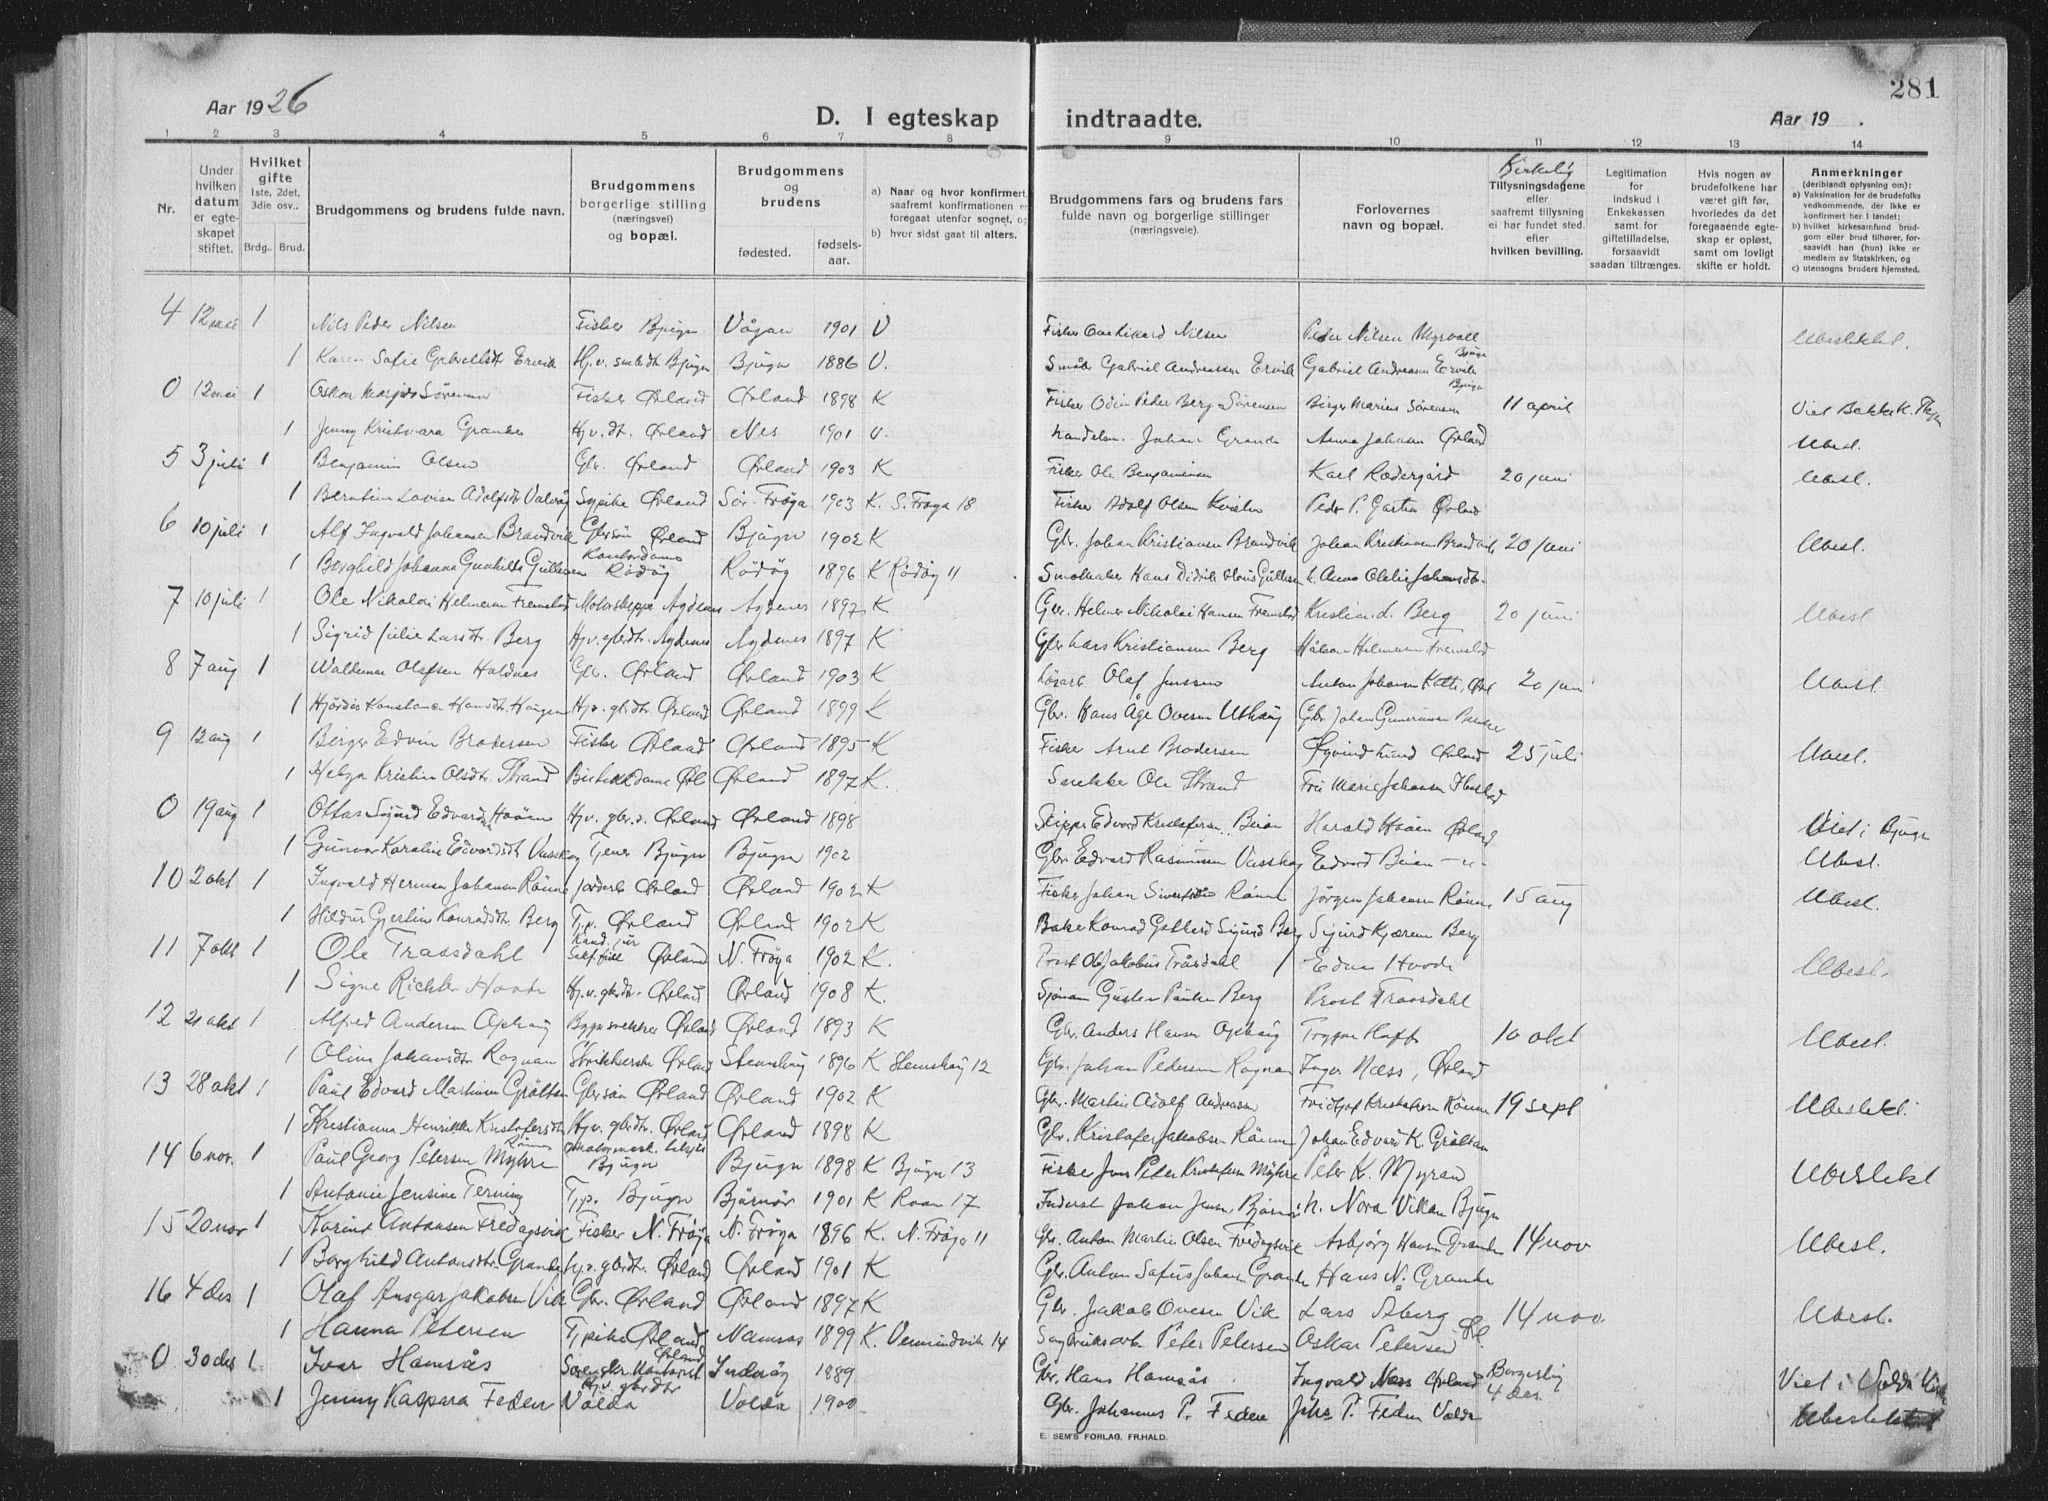 281
Aar 1926
D. I egteskap indtraadte.
Aar 19 .
1 2 3 4 5 6 7 8 9 10 11 12 13 14
Nr.
Under hvilken datum er egteskapet stiftet.
Hvilket gifte 1ste, 2det, 3die osv..
Brdg.. Brud.
Brudgommens og brudens fulde navn.
Brudgommens borgerlige stilling (næringsvei) og bopæl.
Brudgommens og brudens
fødested. fødselsaar.
a) Naar og hvor konfirmert, saafremt konfirmationen er foregaat utenfor sognet, og
b) hvor sidst gaat til alters.
Brudgommens fars og brudens fars fulde navn og borgerlige stillinger (næringsveie).
Forlovernes navn og bopæl.
Kirkelig
Tillysningsdagene eller saafremt tillysning ei har fundet sted. efter hvilken bevilling.
Legitimation for indskud i Enkekassen samt for giftetilladelse, forsaavidt saadan tiltrænges.
Hvis nogen av brudefolkene har været gift før, hvorledes da det foregaaende egteskap er opløst, samt om lovligt skifte er holdt.
Anmerkninger (deriblandt oplysning om):
a) Vaksination for de brudefolks vedkommende, der ikke er konfirmert her i landet;
b) hvilket kirkesamfund brudgom eller brud tilhører, forsaavidt han (hun) ikke er medlem av Statskirken, og
c) utensogns bruders hjemsted.
4 12 mai 1 Nils Peder Nilsen Fisker Bjugn Vågan 1901 U Fisker Ove Rikard Nilsen Peder Nilsen Myrvoll Bjugn Ubeslektet.
1 Karen Sofie Ervik Hj.v. Bjugn Bjugn 1886 U. Gabriel Andreassen Ervik Gabriel Andreasen Ervik Bjugn
0 12 mai 1 Oskar Sørensen Fisker Ørland Ørland 1898 K Fisker Odin Peder Berg Sørensen Birger Marius Sørensen 11 april Viet
1 Jenny Grande Hj.v.dt. Ørland Nes 1901 U. Johan Grande Anna Johansen Ørland Ubesl.
5 3 juli 1 Benjamin Olsen Gbr. Ørland Ørland 1903 K Fisker Ole Benjaminsen Karl Rødergård 20 juni Ubesl.
1 Lovise Adolfsdt Valvåg Sypike Ørland Sør-Frøya 1903 K. S. Frøya 18 Fisker Adolf Olsen Peder P. Garten Ørland
6 10 juli 1 Alf Ingvald Johansen Brandvik Gbrsøn Ørland Bjugn 1902 K Gbr. Johan Kristiansen Brandvik Johan Kristiansen Brandvik 20 juni Ubesl.
1 Borghild Johanna Gunhilde Gullesen Kontordame Rødøy Rødøy 1896 K Rødøy 11 Hans Didrik Gullesen
7 10 juli 1 Ole Nikolai Helmersen Fremstad Agdenes Agdenes 1897 K Gbr. Helmer Nikolai Hansen Fremstad Kristian L. Berg 20 juni Ubesl
1 Sigrid Julie Larsdtr. Berg Hj.v. gbrdtr. Agdenes Agdenes 1897 K Gbr Lars Kristiansen Berg Håkon Helmersen Fremstad
8 7 aug 1 Waldemar Olafsen Haldnes Gbr. Ørland Ørland 1903 K Løsarb Olaf Jenssen 20 juni Ubesl.
1 Hjørdis Konstance Hansdt. Haugen Hj.v. gbrdtr. Ørland Ørland 1899 K Gbr. Hans Åge Ovesen Uthaug
9 12 aug 1 Berger Edvin Brodersen Fisker Ørland Ørland 1895 K Fisker Brodersen Øyvind Ørland 25 juli Ubesl.
1 Helga Kristine Olsdtr. Strand Ørl Ørland 1897 K. Snekker Ole Strand Fru Marie Johansen
0 19 aug 1 Ottas Sigurd Edvardsen Hoøen Hj.v. gbr.s. Ørland Ørland 1898 Skipper Edvard Kristofersen Beian Harald Hoøen Ørland Viet i Bjugn
1 Gunvor Karoline Edvardsdt Vasskag Tjener Bjugn Bjugn 1902 Gbr Edvard Rasmussen Vasskag Edvard Beian —"— Ubesl.
10 2 okt 1 Ingvald Herman Johansen Rønne Ørland Ørland 1902 K Fisker Johan Rønne Jørgen Johansen Rønne 15 aug Ubesl.
1 Hildur Gjertine Konradsdt. Berg Tj.p. Ørland Ørland 1902 K Baker Konrad Sigurd Berg Sigurd Berg
11 7 okt 1 Ole Traasdahl Kand. jur Ørland N. Frøya 1902 K. Prost Ole Jakobus Tråsdahl Edna Hovde Ubesl.
1 Signe Richter Hovde Hj.v. gbrdtr. Ørland Ørland 1908 K. Berg Prost Traasdahl
12 21 okt 1 Alfred Andersen Ophaug Ørland Ørland 1893 K Gbr. Anders Hansen Ophaug Trygve Hoff 10 okt Ubesl.
1 Oline Johansdtr Rognan Ørland Stemshaug 1896 K Stemshaug 12 Gbr. Johan Pedersen Rognan Inger Næss, Ørland
13 28 okt 1 Paul Edvard Martinsen Grøltan Gbrsøn Ørland Ørland 1902 K Gbr. Martin Adolf Andreassen Fridtjof Kristofersen Rønne 19 sept Ubeslekt.
1 Kristianna Henrikke Kristofersdtr Rønne Hj.v. gbrdtr. Ørland Ørland 1898 K Gbr. Kristofer Jakobsen Rønne Johan Edvard K. Grøltan
14 6 nov. 1 Paul Georg Petersen Myhre Bjugn Bjugn 1898 K Bjugn 13 Fisker Peter Kristofersen Myhre Peter K. Myran Ubeslekt
1 Antonie Jensine Terning Tj.p. Bjugn Bjørnør 1901 K Roan 17 Johan Jensen, Bjørnør Nora Vikan Bjugn
15 20 nov 1 Antonsen Fredagsvik Fisker N. Frøya N. Frøya 1896 K. N. Frøya 11 Gbr. Anton Martin Olsen Fredagsvik Asbjørg Hansen Grande 14 nov Ubesl.
1 Borghild Antonsdtr. Grande Hj.v. gbrdtr. Ørland Ørland 1901 K Gbr. Anton Johansen Grande Hans N. Grande
16 4 des 1 Olaf Ansgar Jakobsen Vik Gbr. Ørland Ørland 1897 K Gbr. Jakob Ovesen Vik Lars Åberg Ørl. 14 nov. Ubesl.
1 Hanna Petersen Tjpike Ørland Namsos 1899 K. Vemundvik 14 Peter Petersen Oskar Petersen
0 30 des 1 Ivar Hamsås Ørland Inderøy 1889 Gbr. Hans Hamsås Ingvald Næss Ørland Borgerlig 4 des Viet i Volda kirke
1 Jenny Kaspara Feden Hj.v. gbrdtr Volda Volda 1900 Gbr. Johannes P. Fedne Johs P. Feden Volda Ubeslektet
E. SEM'S FORLAG, FR.HALD.